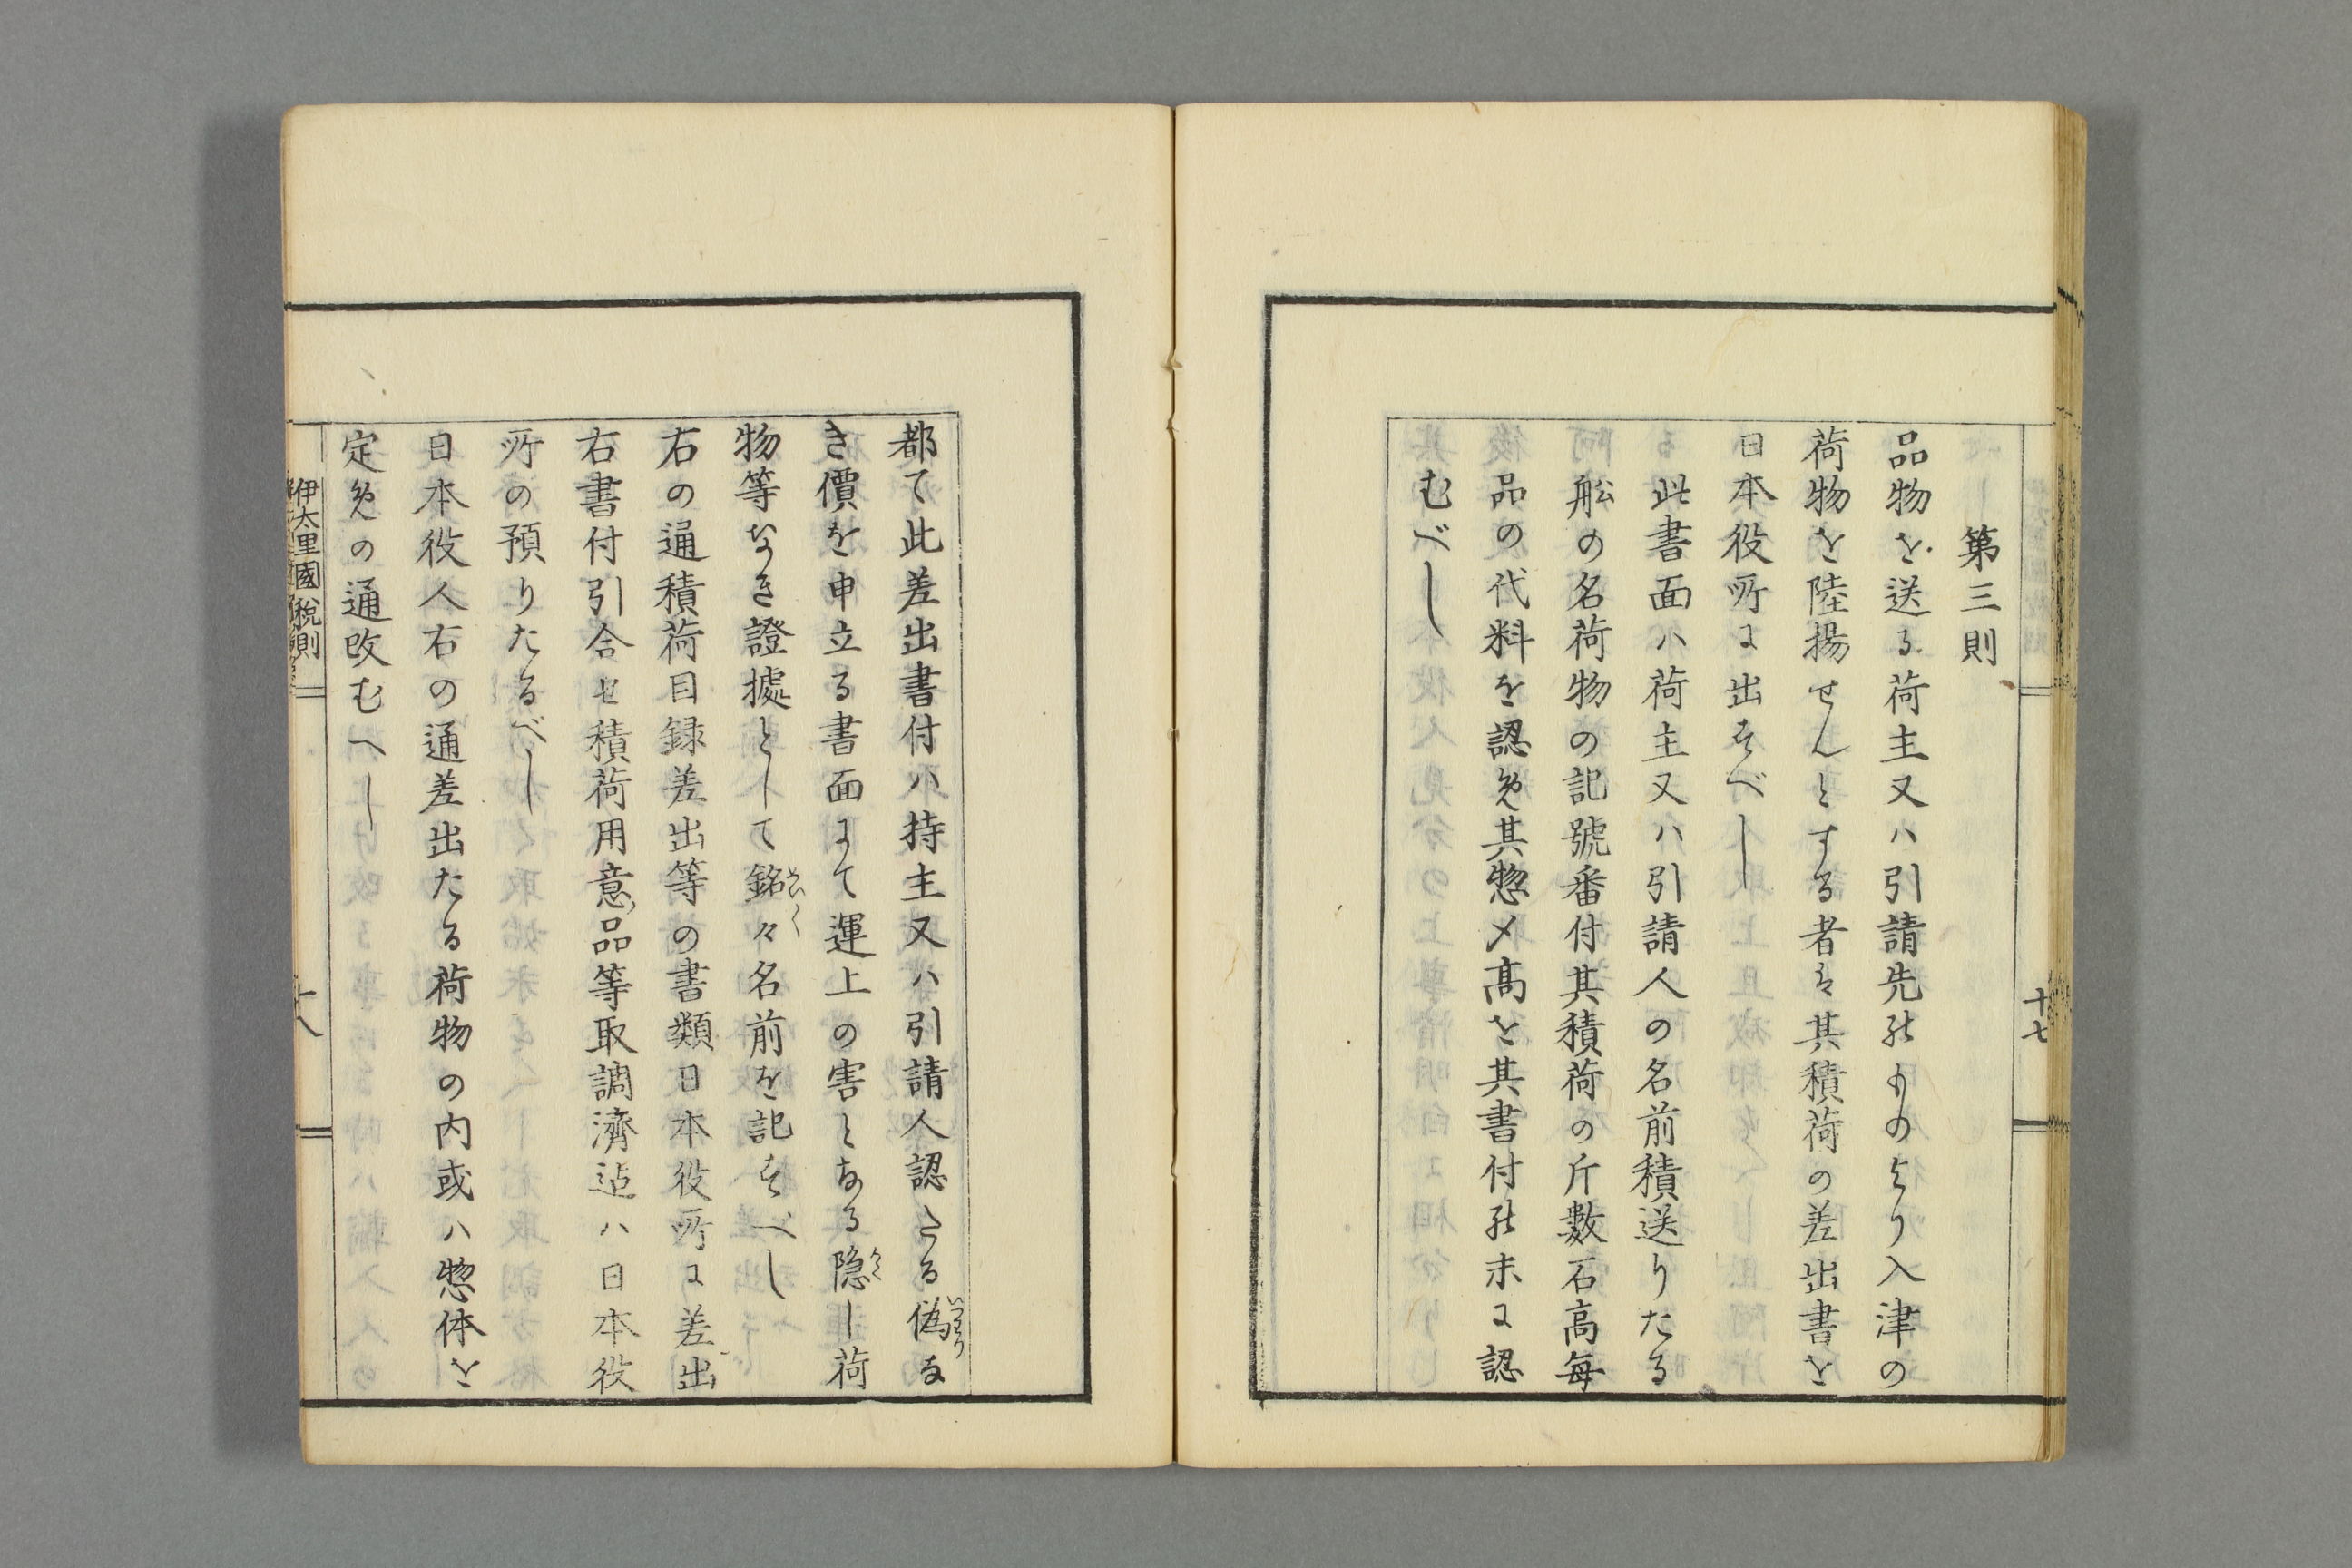 第三則
品物を送る荷主又ハ引請先のものより入津の
荷物を陸揚せんとする者は其積荷の差出書を
日本役所に出すべし
此書面ハ荷主又ハ引請人の名前積送りたる
舩の名荷物の記號番付其積荷の斤數石高毎
品の代料を認め其惣〆高を其書付の末に認
むべし
十七
都て此差出書付ハ持主又ハ引請人認たる偽な
いつわり
き價を申立る書面にて運上の害となる隠し荷
かく
物等なき證據として銘々名前を記すべし
めい〳〵
右の通積荷目録差出等の書類日本役所に差出
右書付引合せ積荷用意品等取調濟迠ハ日本役
所の預りたるべし
日本役人右の通差出たる荷物の内或ハ惣体を
定めの通改むへし
伊太里國税則
十八